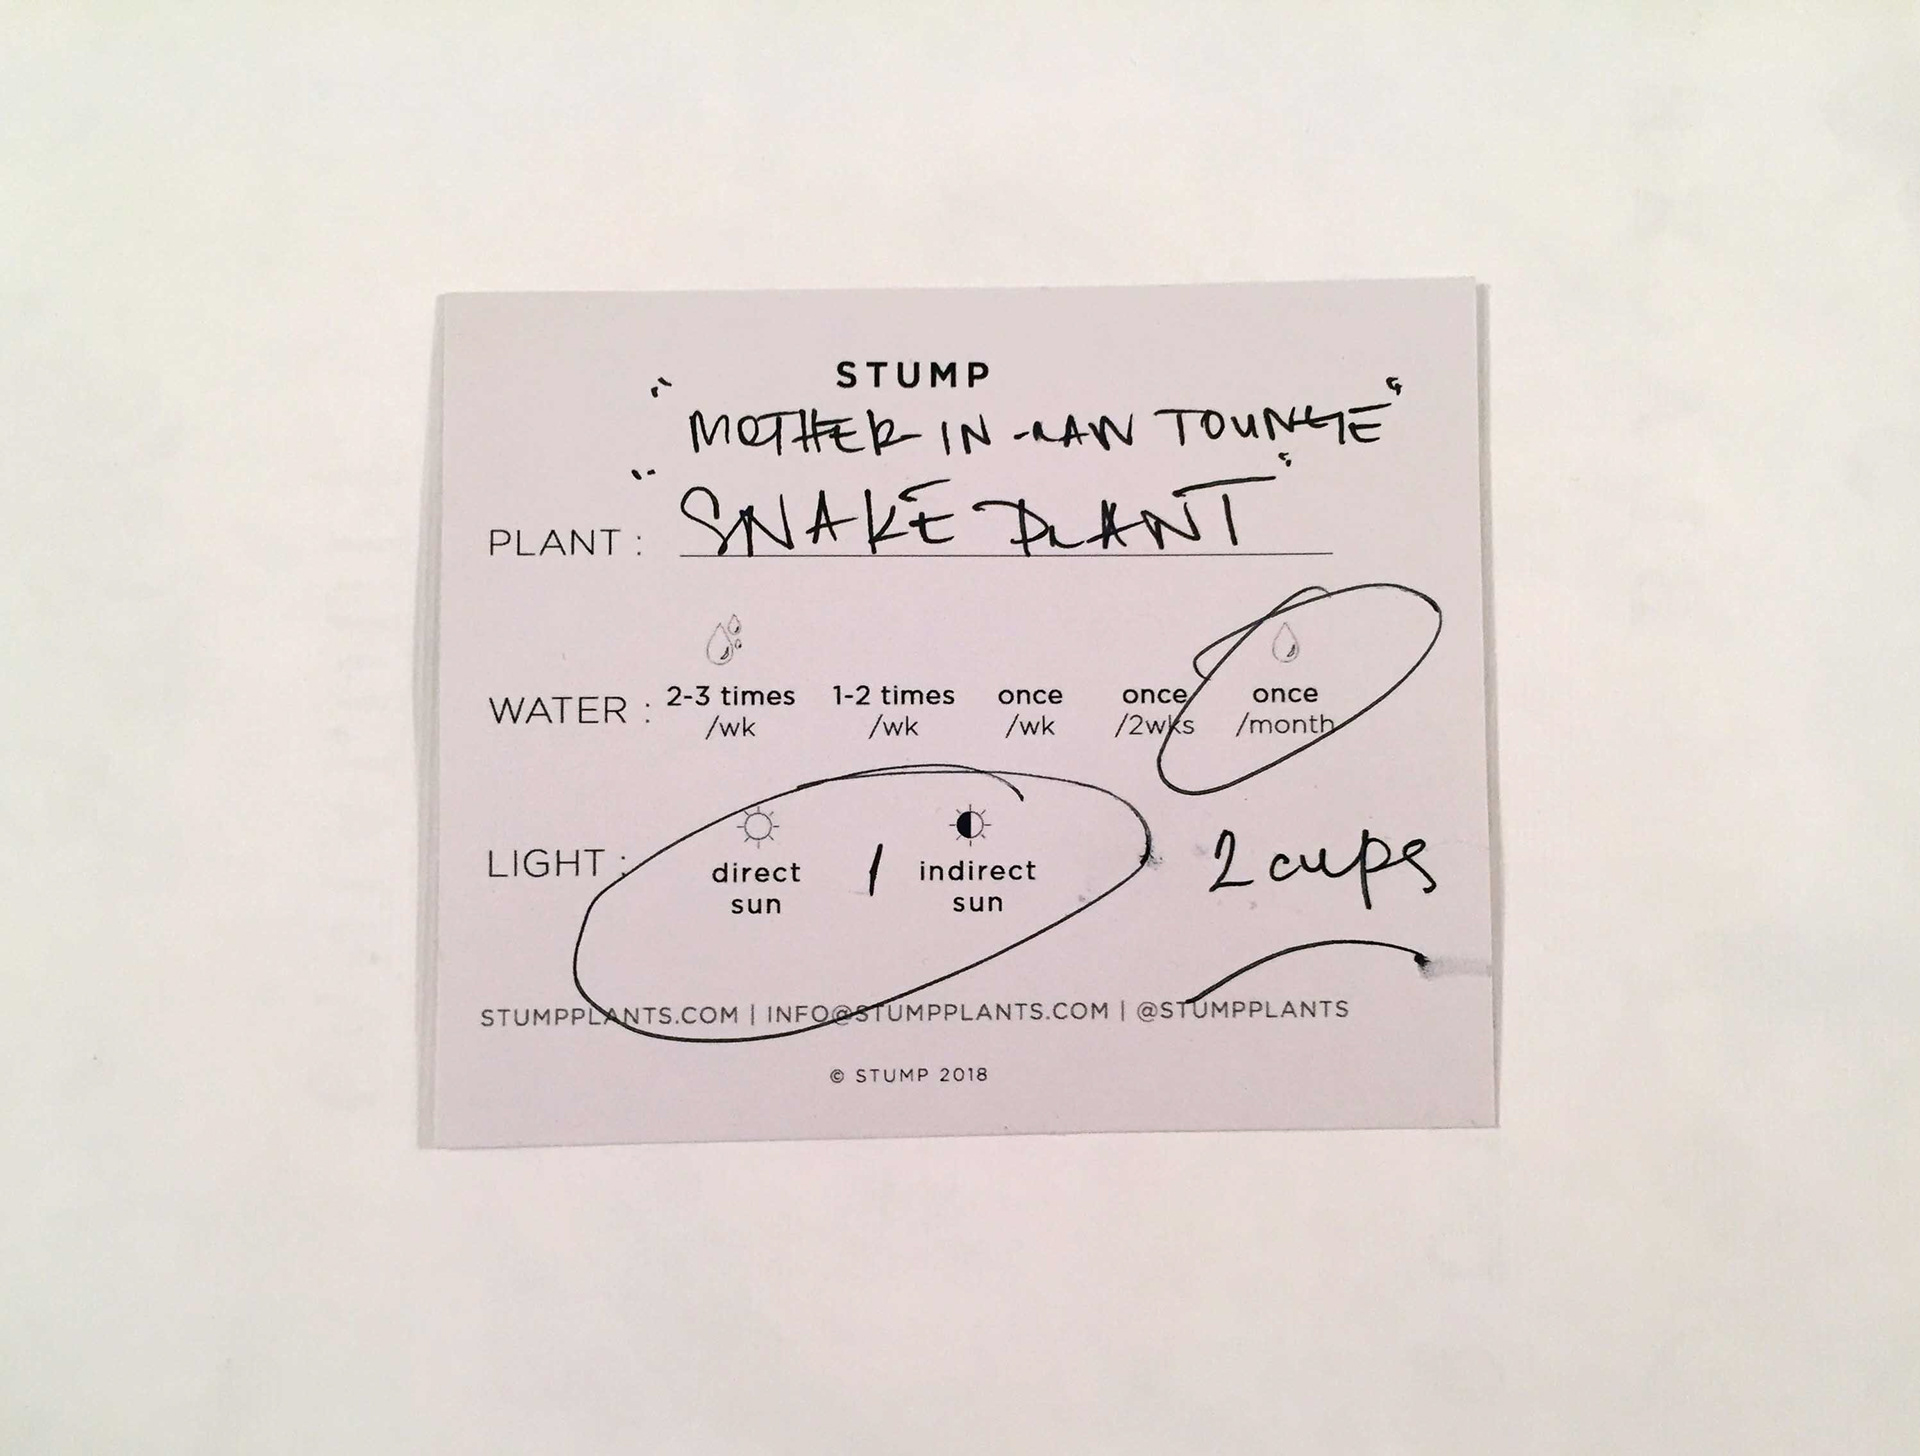 STUMP
"MOTHER IN-LAW TOUNGE"
"SNAKE PLANT"
PLANT :
WATER : 2-3 times /wk 1-2 times /wk once /wk once /2wks once /month
LIGHT : direct sun / indirect sun 2 cups
STUMPPLANTS.COM | INFO@STUMPPLANTS.COM | @STUMPPLANTS
© STUMP 2018